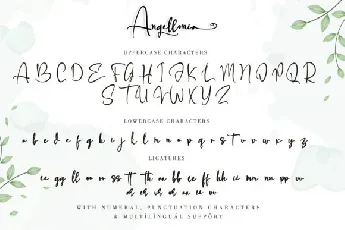 Angellmia
UPPERCASE CHARACTERS
A B C D E F G H I J K L M N O P Q R
S T U V W X Y Z
LOWERCASE CHARACTERS
a b c d e f g h i j k l m n o p q r s t u v w x y z
LIGATURES
ee gg ll oo rr ss tt th an bb cc ff hh ii mm nn pp
WITH NUMERAL, PUNCTUATION CHARACTERS
& MULTILINGUAL SUPPORT